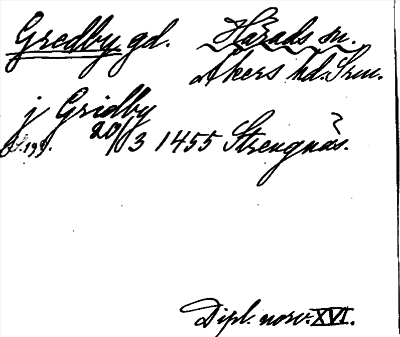 Gredby gd. Härads sn.
Åkers hd. Srm.
j Gridby
20/3 1455 Strengnäs.
Dipl. norv. XVI.